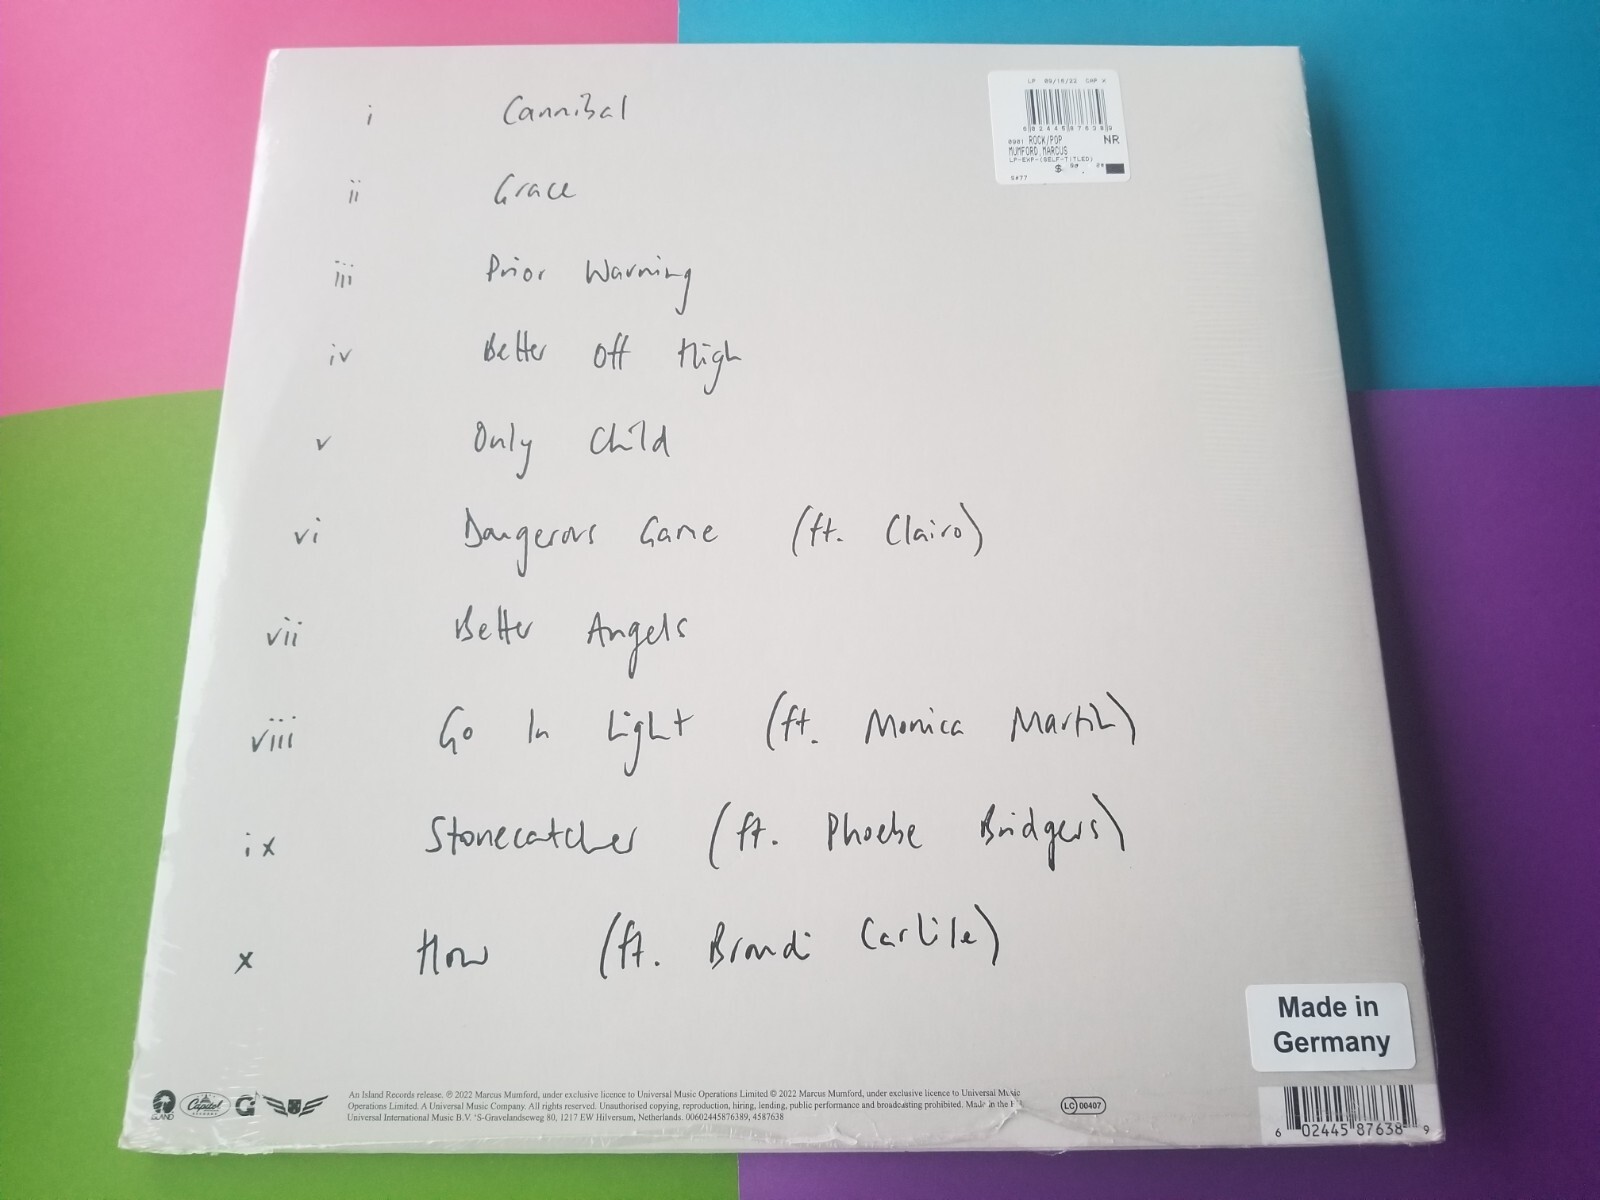 i Cannibal
ii Grace
iii Prior Warning
iv Better Off High
v Only Child
vi Dangerous Game (ft. Clairo)
vii Better Angels
viii Go In Light (ft. Monica Martin)
ix Stonecatcher (ft. Phoebe Bridgers)
x How (ft. Brandi Carlile)
LP 09/16/22 CAP X
602445876389
0901 ROCK/POP NR
MUMFORD,MARCUS
LP-EXP-(SELF-TITLED)
$
5477
Made in
Germany
ISLAND
Capitol
An Island Records release. ℗ 2022 Marcus Mumford, under exclusive licence to Universal Music Operations Limited © 2022 Marcus Mumford, under exclusive licence to Universal Music
Operations Limited. A Universal Music Company. All rights reserved. Unauthorised copying, reproduction, hiring, lending, public performance and broadcasting prohibited. Made in the
Universal International Music B.V. 'S-Gravelandseweg 80, 1217 EW Hilversum, Netherlands. 00602445876389, 4587638
LC 00407
6 02445 87638 9